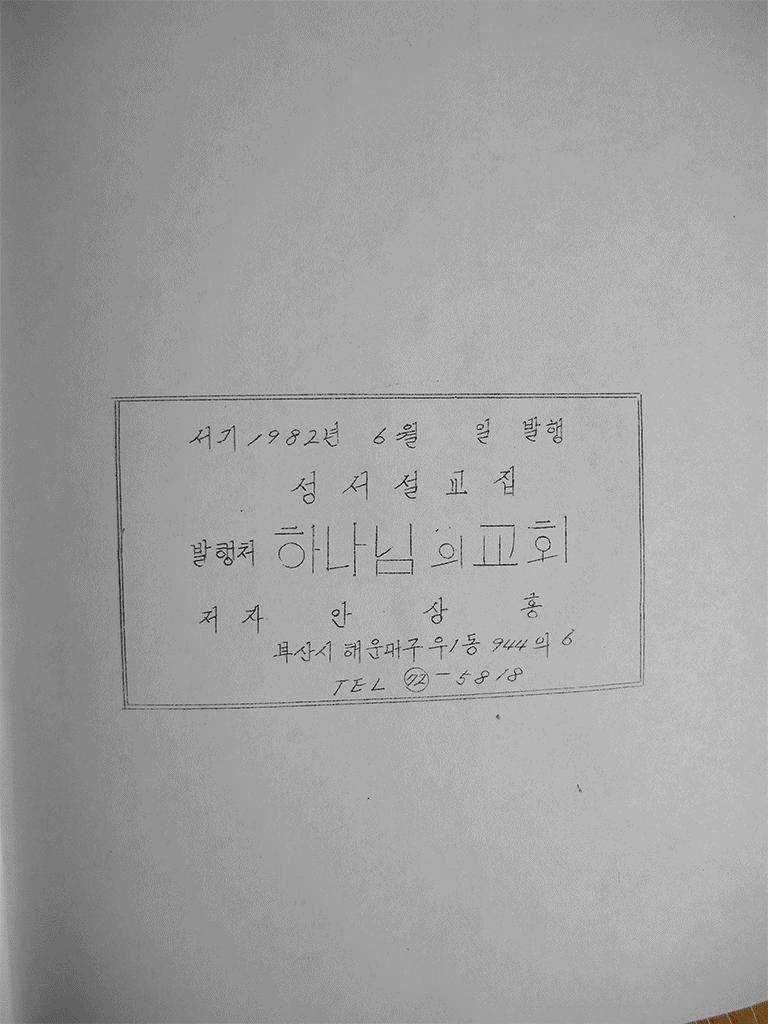 서기 1982년 6월 일 발행
성서설교집
발행처 하나님의교회
저자 안상홍
부산시 해운대구 우1동 944의 6
TEL 72-5818